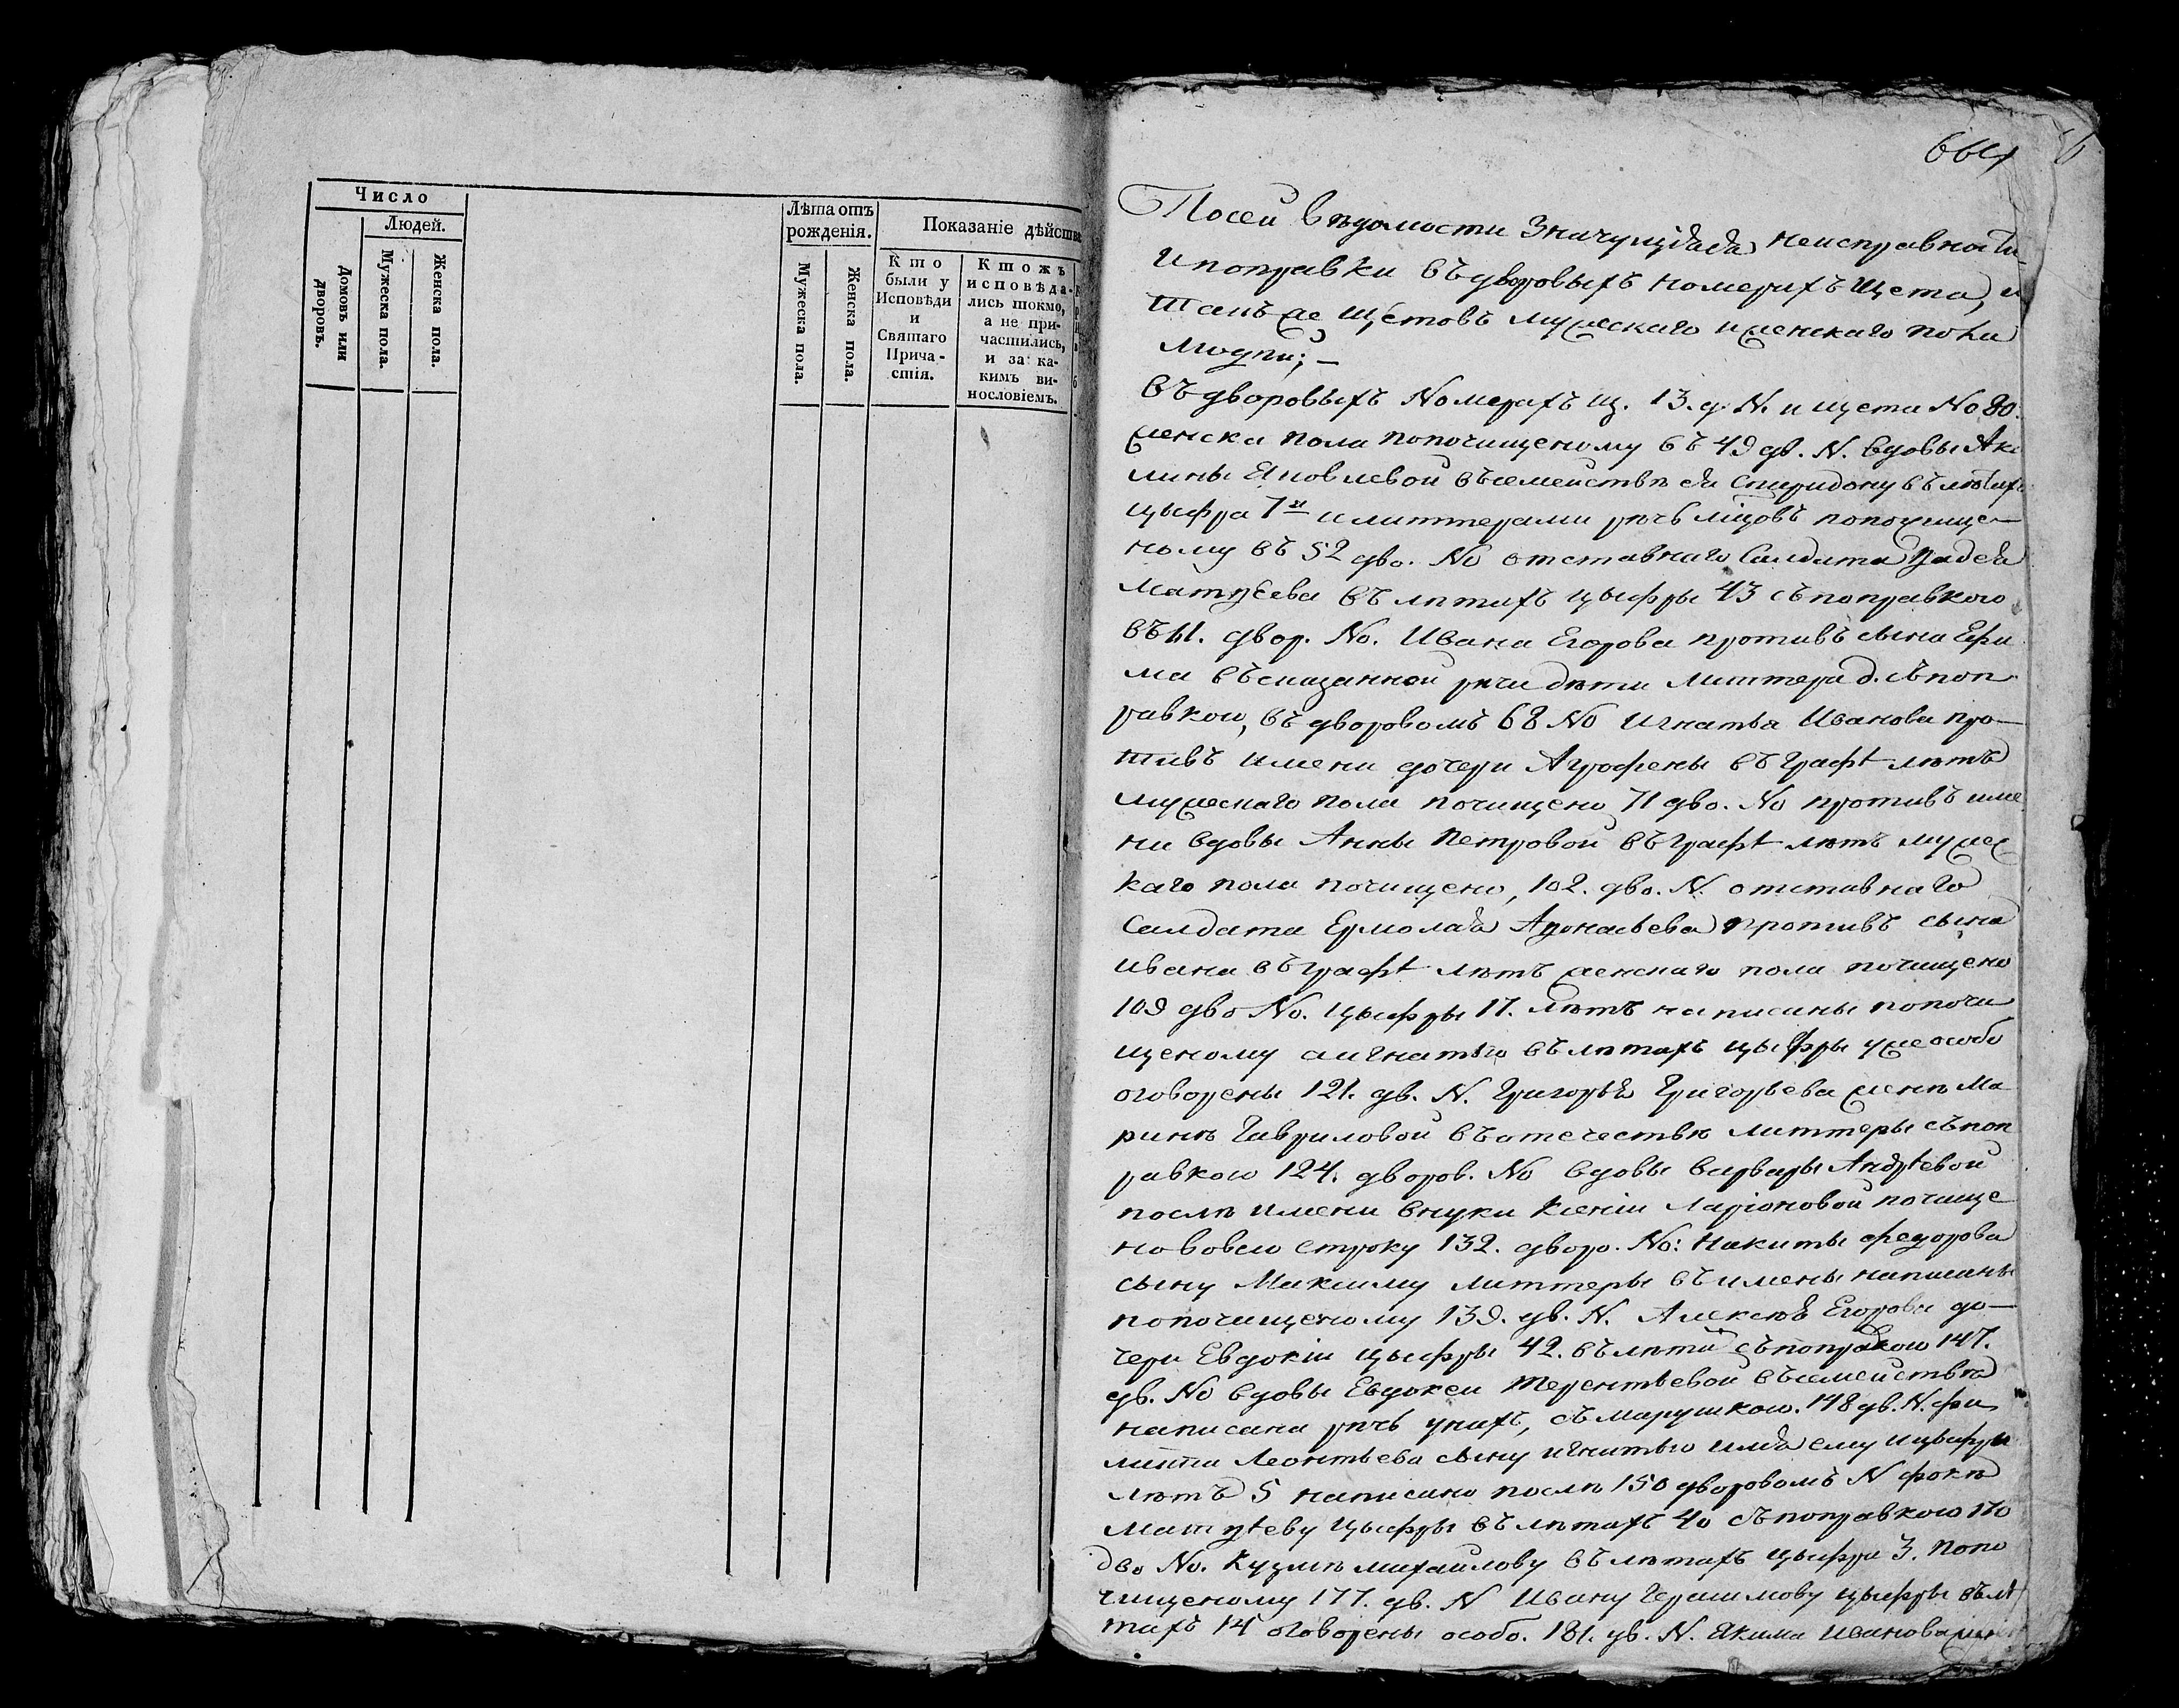 Число
Людей.
Домовъ или дворовъ.
Мужеска пола.
Женска пола.
Лѣта отъ рожденія.
Мужеска пола.
Женска пола.
Показаніе дѣйства
Кто были у Исповѣди и Святаго Причастія.
Ктожъ исповѣдались токмо, а не причастились, и за какимъ винословіемъ.
664
Посей вѣдомости значущаяся неисправности
и поправки въ дворовыхъ номерахъ щета, и
такъ же щетовъ мужескаго и женскаго пола
людей; —
въ дворовыхъ Номерахъ щ. 13. д. N. и щета No 80.
женска пола попочищеному въ 49 дв. N. вдовы Аку
лины Яковлевой въ семействѣ ея Спиридону въ лѣтахъ
цыфра 7я и литтерами рѣчь попочище—
ному въ 52 дво. No отставнаго Салдата Фадея
Матвѣева въ лѣтахъ цыфры 43 съ поправкою
въ 61. двор. No. Ивана Егорова противъ сына Ефи
ма въ сказанной рѣчи дѣти литтера д. съ поп
равкою, въ дворовомъ 68 No Игнатья Иванова про—
тивъ имени дочери Агрофены въ графѣ лѣтъ
мужескаго пола почищено 71 дво. No противъ име
ни вдовы Анны Петровой въ графѣ лѣтъ мужес
каго пола почищено, 102. дво. N. отставнаго
Салдата Ермолая Афонасьева противъ сына
Ивана въ графѣ лѣтъ женскаго пола почищено
109 дво No. цыфры 17. лѣтъ написаны попочи
щеному а игнатью въ лѣтахъ цыфры уже особо
оговорены 121. дв. N. Григорья Григорьева женѣ Ма
ринѣ Гавриловой въ отечествѣ литтеры съ поп
равкою 124. дворов. No вдовы Варвары Андрѣевой
послѣ имени внуки Ксеніи Ларіоновой почище
но во всю строку 132. дворо. No: Никиты Федорова
сыну Максиму литтеры въ имены написаны
попочищеному 139. дв. N. Алексѣя Егорова до—
чери Евдокіи цыфры 42. въ лѣтахъ съ поправкою 147.
дв. No вдовы Евдокеи Терентьевой въ семействѣ
написана рѣчь унихъ, съ марушкою. 148 дв. N. Фи
липпа Леонтьева сыну игнатью имя ему и цыфра
лѣтъ 5 написано послѣ 150 дворовомъ N Фокѣ
Матвѣеву цыфры въ лѣтахъ 40 съ поправкою 170
дво No. Кузмѣ Михайлову въ лѣтахъ цыфра 3. попо
чищеному 177. дв. N Ивану Герасимову цыфры въ лѣ
тахъ 14 оговорены особо. 181. дв. N. Якима Иванова жен